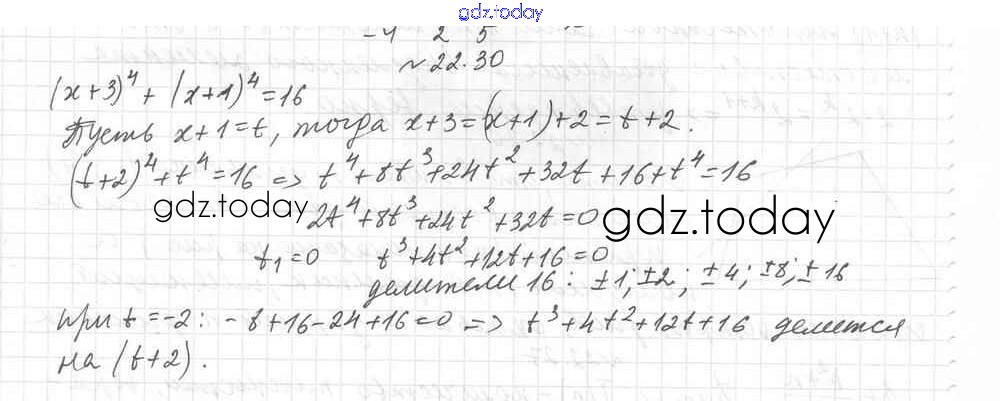 gdz.today
-4 2 5
~22.30
(x+3)⁴ + (x+1)⁴ = 16
Пусть x+1=t, тогда x+3=(x+1)+2=t+2.
(t+2)⁴+t⁴=16 => t⁴+8t³+24t²+32t+16+t⁴=16
gdz.today 2t⁴+8t³+24t²+32t=0 gdz.today
t₁=0 t³+4t²+12t+16=0
делители 16: ±1; ±2; ±4; ±8; ±16
при t=-2: -8+16-24+16=0 => t³+4t²+12t+16 делится
на (t+2).